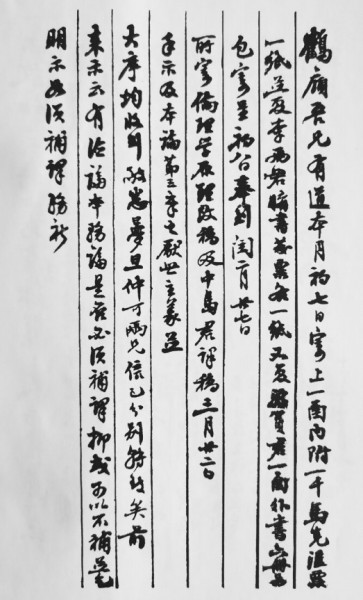 鶴廎吾兄有道本月初七日寄上一函內附一千馬克匯票
一紙並致李君書并票各一紙又致君一函作書
包寄呈初八日奉到閏二月廿七日
所寄倫理學原理改稿及中島君譯稿三月廿二日
手示及本論第三章之厭世主義並
大序均收到敬悉夢旦仲可兩兄信已分別轉致矣前
來示云有結論是否必須補譯抑或可以不補乞
明示如須補譯務祈